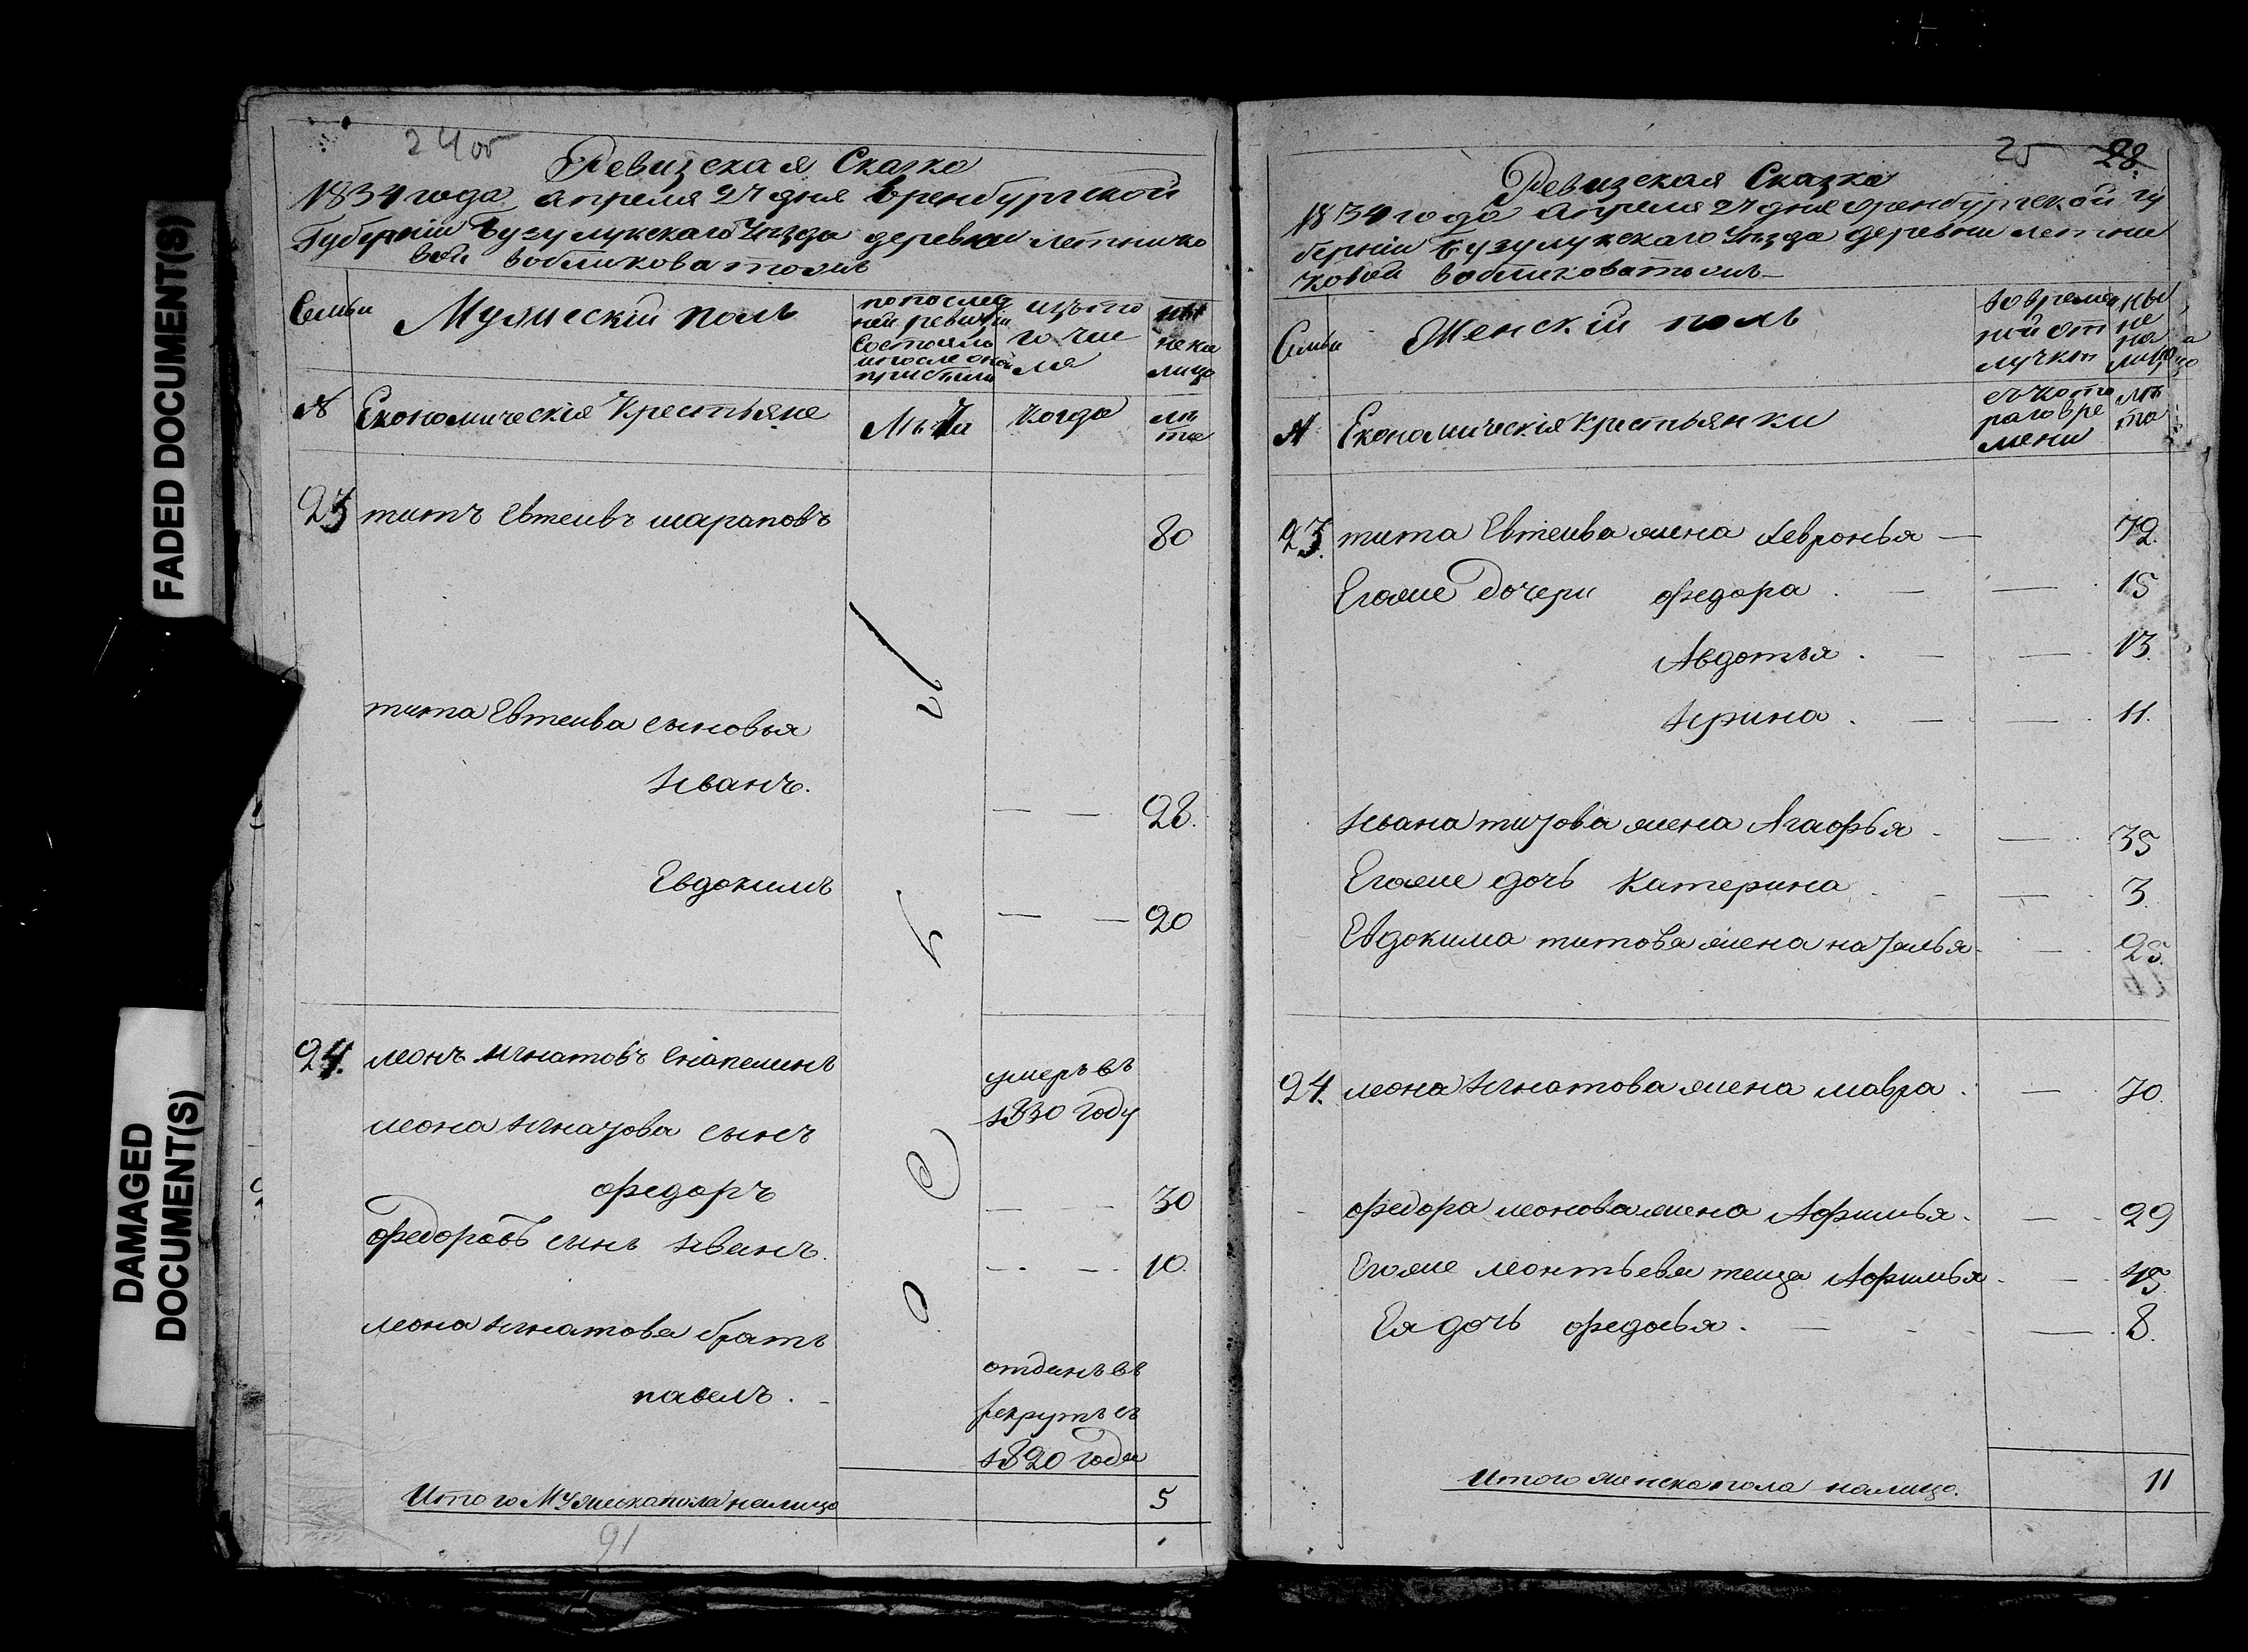 FADED DOCUMENT(S)
DAMAGED
DOCUMENT(S)
24об
Ревизская Сказка
1834 года апреля 27 дня Оренбургской
Губерніи Бузулукскаго Уѣзда деревни летнико
вой
Семьи
Мужескій полъ
по послед
ней ревизіи
состояло
и после оной
прибыли
изъ то
го чис
ла
ныне
на
лицо
№
Економическія Крестьяне
Лѣты
когда
лѣ
та
23
титъ Евтеивъ шараповъ
80
тита Евтеива сыновья
Иванъ.
28.
Евдокимъ
20
24.
леонъ игнатовъ
умеръ въ
1830 году
леона Игнатова сынъ
федоръ
30
федоровъ сынъ Иванъ.
10.
леона Игнатова братъ
павелъ.
отданъ въ
рекрутъ съ
1820 года
Итого Мужеска пола налицо
5
91
25
28.
Ревизская Сказка
1834 года Апреля 27 дня Оренбургской гу
берніи Бузулукскаго Уѣзда деревни летни
ковой
Семьи
Женскій полъ
во времен
ной от
лучкѣ
ны
не
на
лицо
№
Економическія Крестьянки
съ кото
раго вре
мени
лѣ
та
23.
тита Евтеива жена Февронья
72.
Егоже Дочери федора.
15
Авдотья.
13.
Ирина.
11.
Ивана титова жена Агафья
35
Егоже дочь Катерина
3.
Евдокима титова жена наталья
25.
24.
леона Игнатова жена мавра.
70.
федора леонова жена Афимья.
29
Егоже леонтьева теща Афимья
45.
Ея дочь федосья.
8.
Итого женска пола налицо.
11